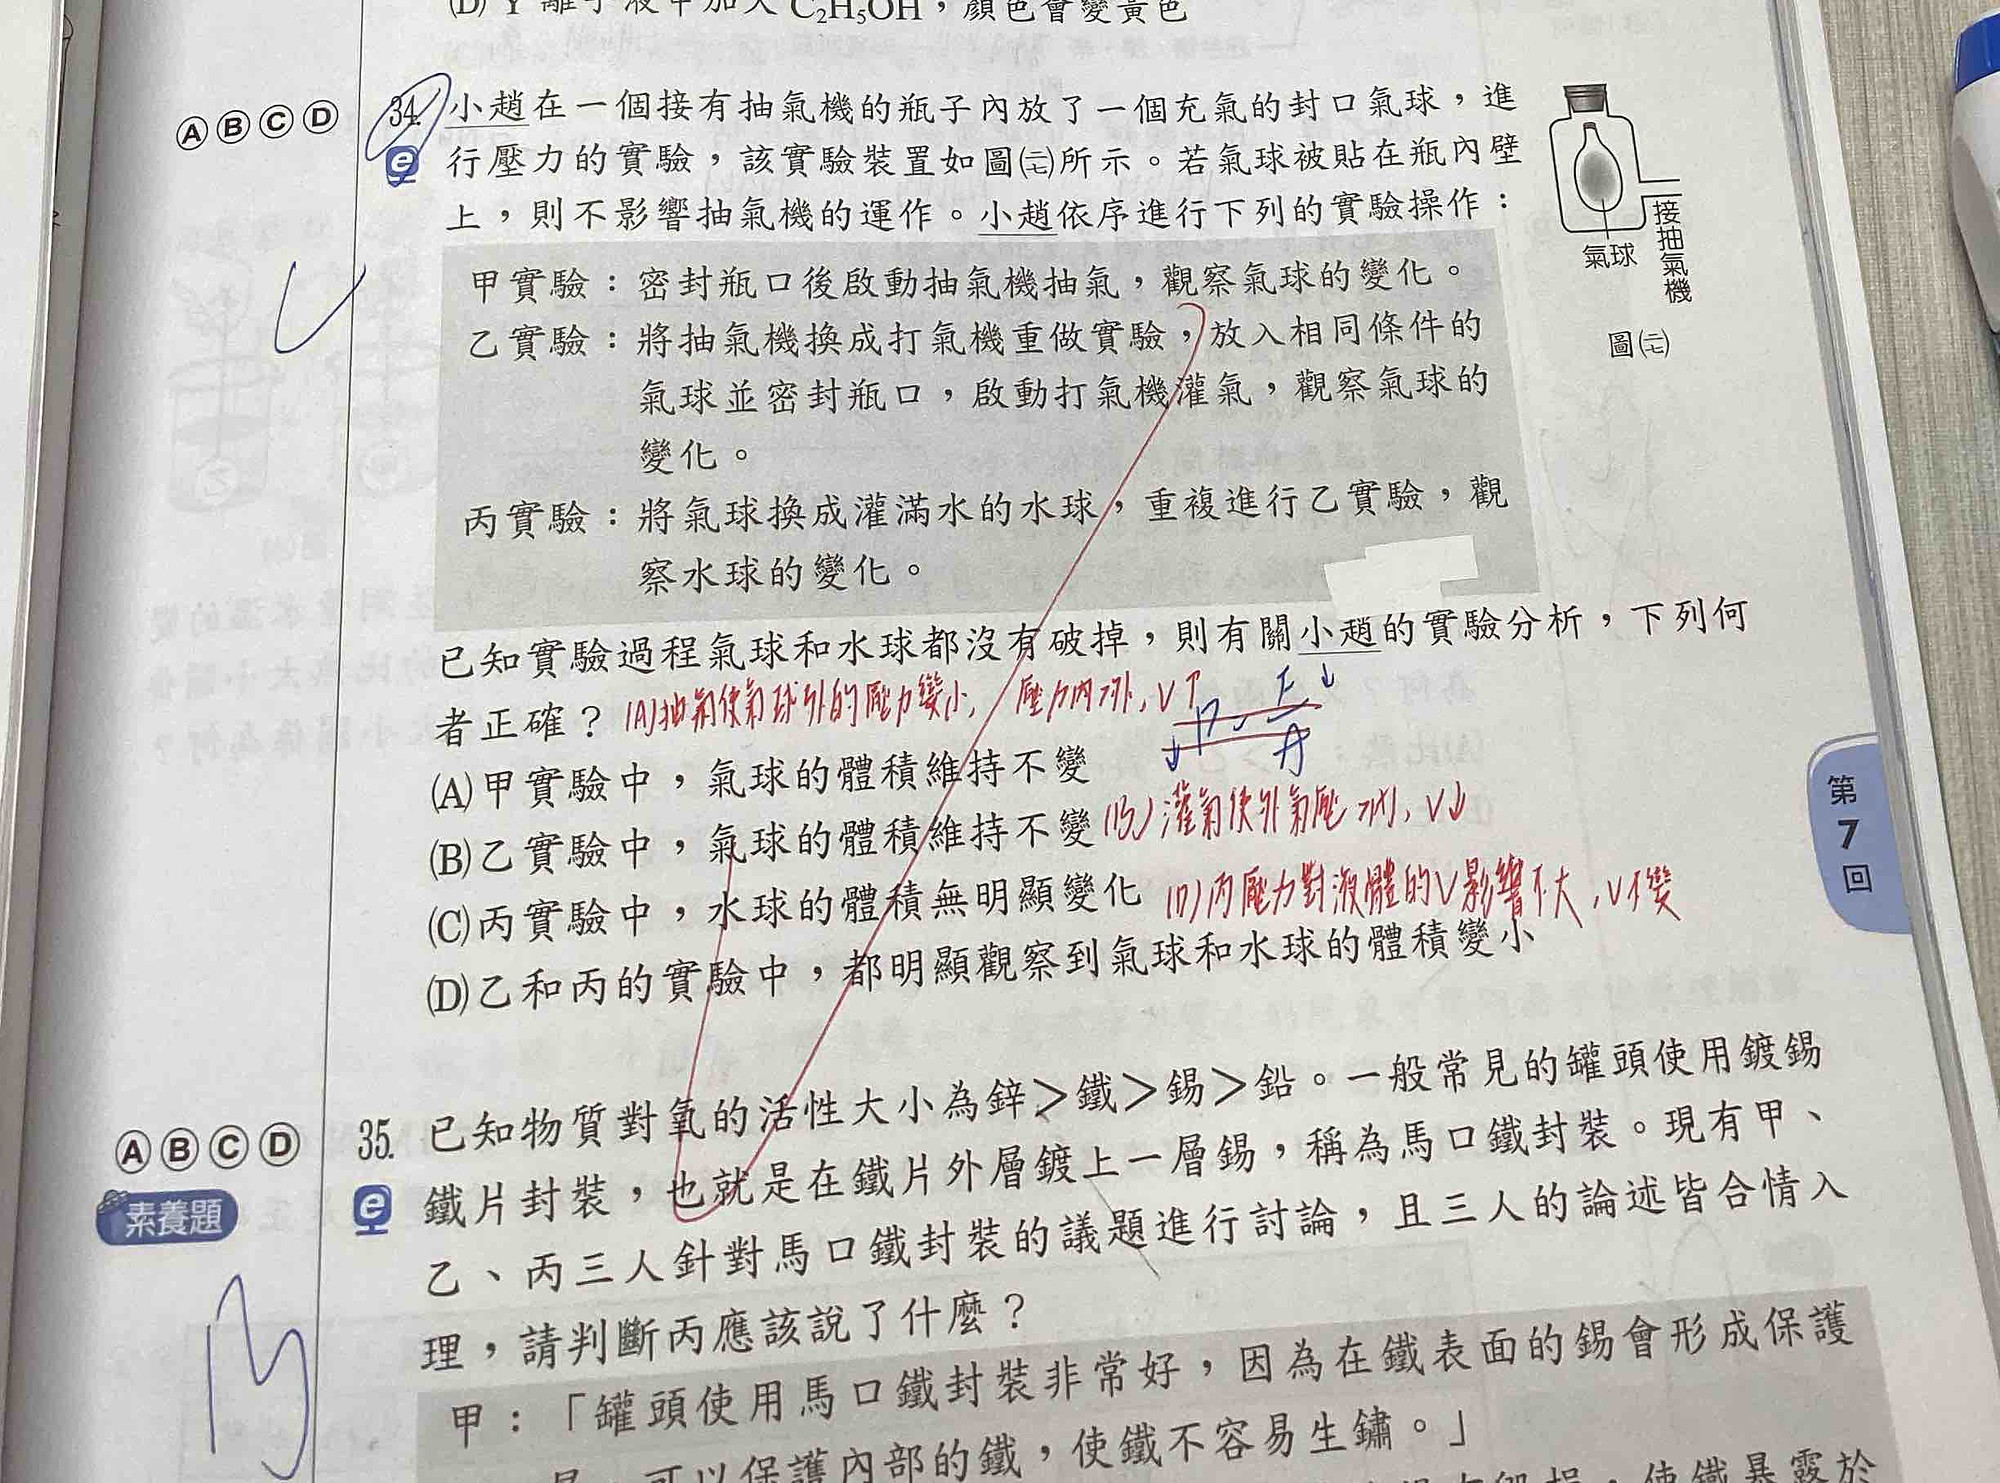 (D) Y 離子液中加入 C₂H₅OH，顏色會變黃色
ⒶⒷⒸⒹ 34. 小趙在一個接有抽氣機的瓶子內放了一個充氣的封口氣球，進
行壓力的實驗，該實驗裝置如圖(二七)所示。若氣球被貼在瓶內壁
上，則不影響抽氣機的運作。小趙依序進行下列的實驗操作：
氣球
接抽氣機
圖(二七)
甲實驗：密封瓶口後啟動抽氣機抽氣，觀察氣球的變化。
乙實驗：將抽氣機換成打氣機重做實驗，放入相同條件的
氣球並密封瓶口，啟動打氣機灌氣，觀察氣球的
變化。
丙實驗：將氣球換成灌滿水的水球，重複進行乙實驗，觀
察水球的變化。
已知實驗過程氣球和水球都沒有破掉，則有關小趙的實驗分析，下列何
者正確？
(A)抽氣使氣球外的壓力變小，壓力內>外，V↑
↓P = F↓/A
(A)甲實驗中，氣球的體積維持不變
(B)乙實驗中，氣球的體積維持不變
(B)灌氣使外氣壓>內，V↓
(C)丙實驗中，水球的體積無明顯變化
(D)丙壓力對液體的V影響不大，V不變
(D)乙和丙的實驗中，都明顯觀察到氣球和水球的體積變小
第7回
ⒶⒷⒸⒹ 35. 已知物質對氧的活性大小為鋅＞鐵＞錫＞鉛。一般常見的罐頭使用鍍錫
素養題
鐵片封裝，也就是在鐵片外層鍍上一層錫，稱為馬口鐵封裝。現有甲、
乙、丙三人針對馬口鐵封裝的議題進行討論，且三人的論述皆合情入
理，請判斷丙應該說了什麼？
甲：「罐頭使用馬口鐵封裝非常好，因為在鐵表面的錫會形成保護
可以保護內部的鐵，使鐵不容易生鏽。」
使鐵暴露於